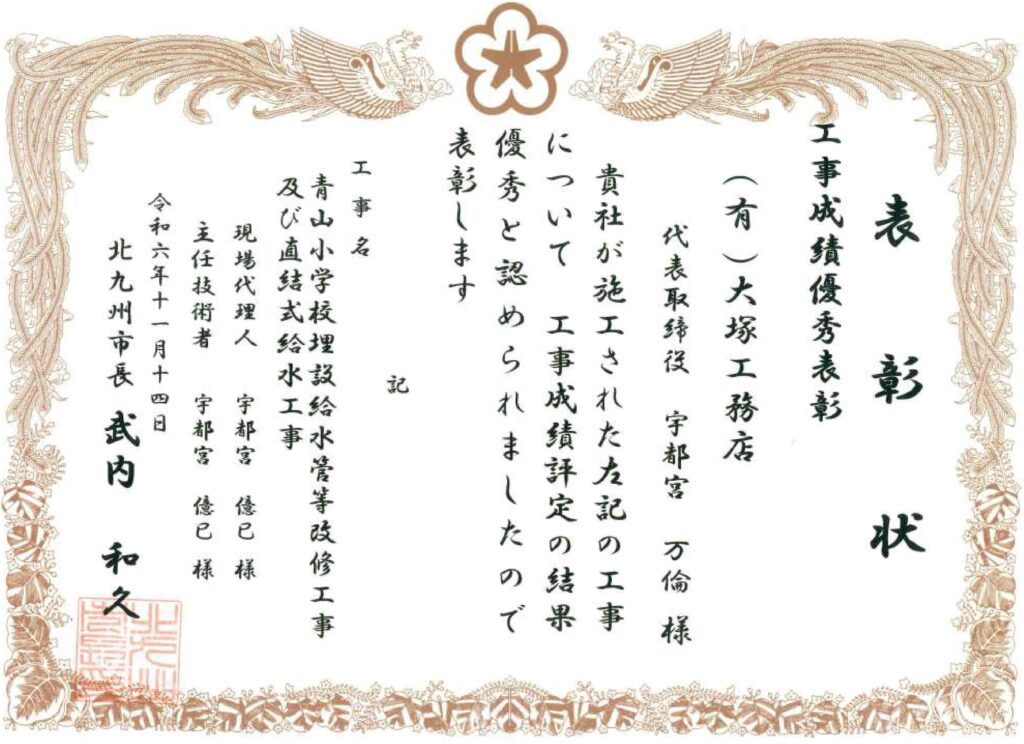 表彰状
工事成績優秀表彰
(有)大塚工務店
代表取締役 宇都宮 万倫 様
貴社が施工された左記の工事
について 工事成績評定の結果
優秀と認められましたので
表彰します
記
工事名
青山小学校埋設給水管等改修工事
及び直結式給水工事
現場代理人 宇都宮 億已 様
主任技術者 宇都宮 億已 様
令和六年十一月十四日
北九州市長 武内 和久